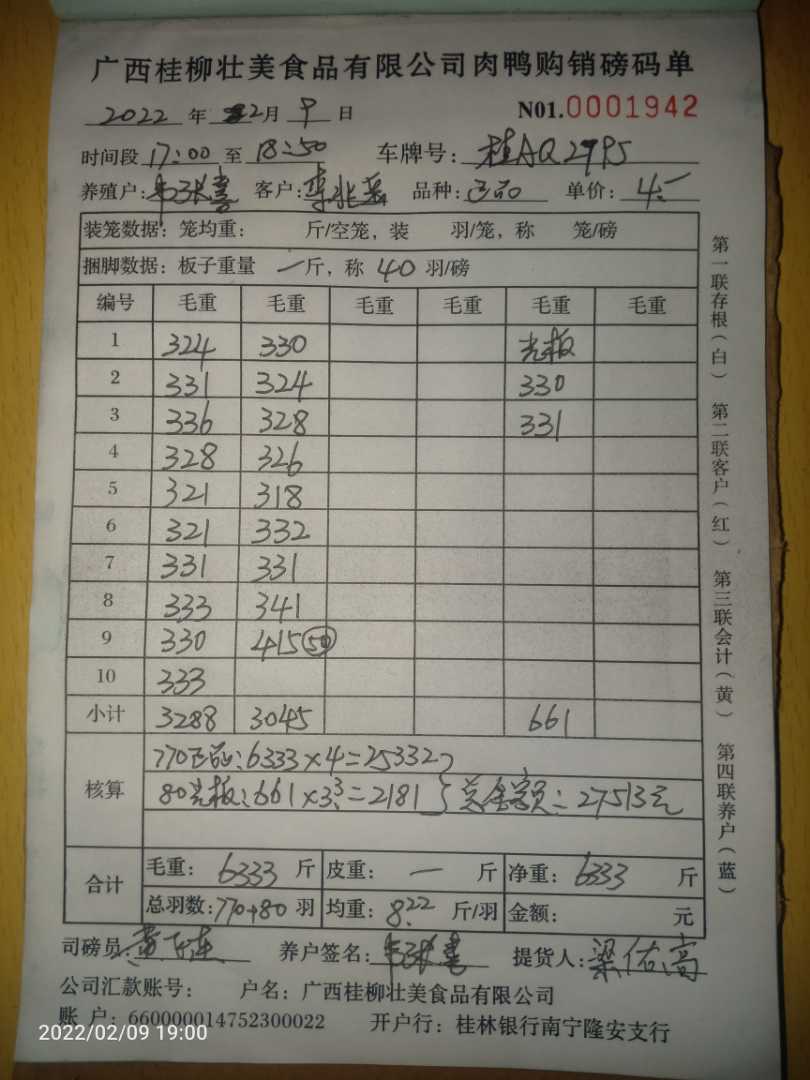 广西桂柳壮美食品有限公司肉鸭购销磅码单
2022 年 2月 9 日 N01.0001942
时间段 17:00 至 18:50 车牌号: 桂AQ2795
养殖户: 客户: 品种: 正品 单价: 4.-
装笼数据: 笼均重: 斤/空笼, 装 羽/笼, 称 笼/磅
捆脚数据: 板子重量 一 斤, 称 40 羽/磅
编号 毛重 毛重 毛重 毛重 毛重 毛重
1 324 330 光板
2 331 324 330
3 336 328 331
4 328 326
5 321 318
6 321 332
7 331 331
8 333 341
9 330 415 50
10 333
小计 3288 3045 661
核算 770正品:6333×4=25332
80光板:661×3.3=2181 } 总金额:27513元
合计 毛重: 6333 斤 皮重: 一 斤 净重: 6333 斤
总羽数: 770+80 羽 均重: 8.22 斤/羽 金额: 元
司磅员: 养户签名: 提货人: 梁佑高
公司汇款账号: 户名: 广西桂柳壮美食品有限公司
账 户: 660000014752300022 开户行: 桂林银行南宁隆安支行
第一联存根(白) 第二联客户(红) 第三联会计(黄) 第四联养户(蓝)
2022/02/09 19:00